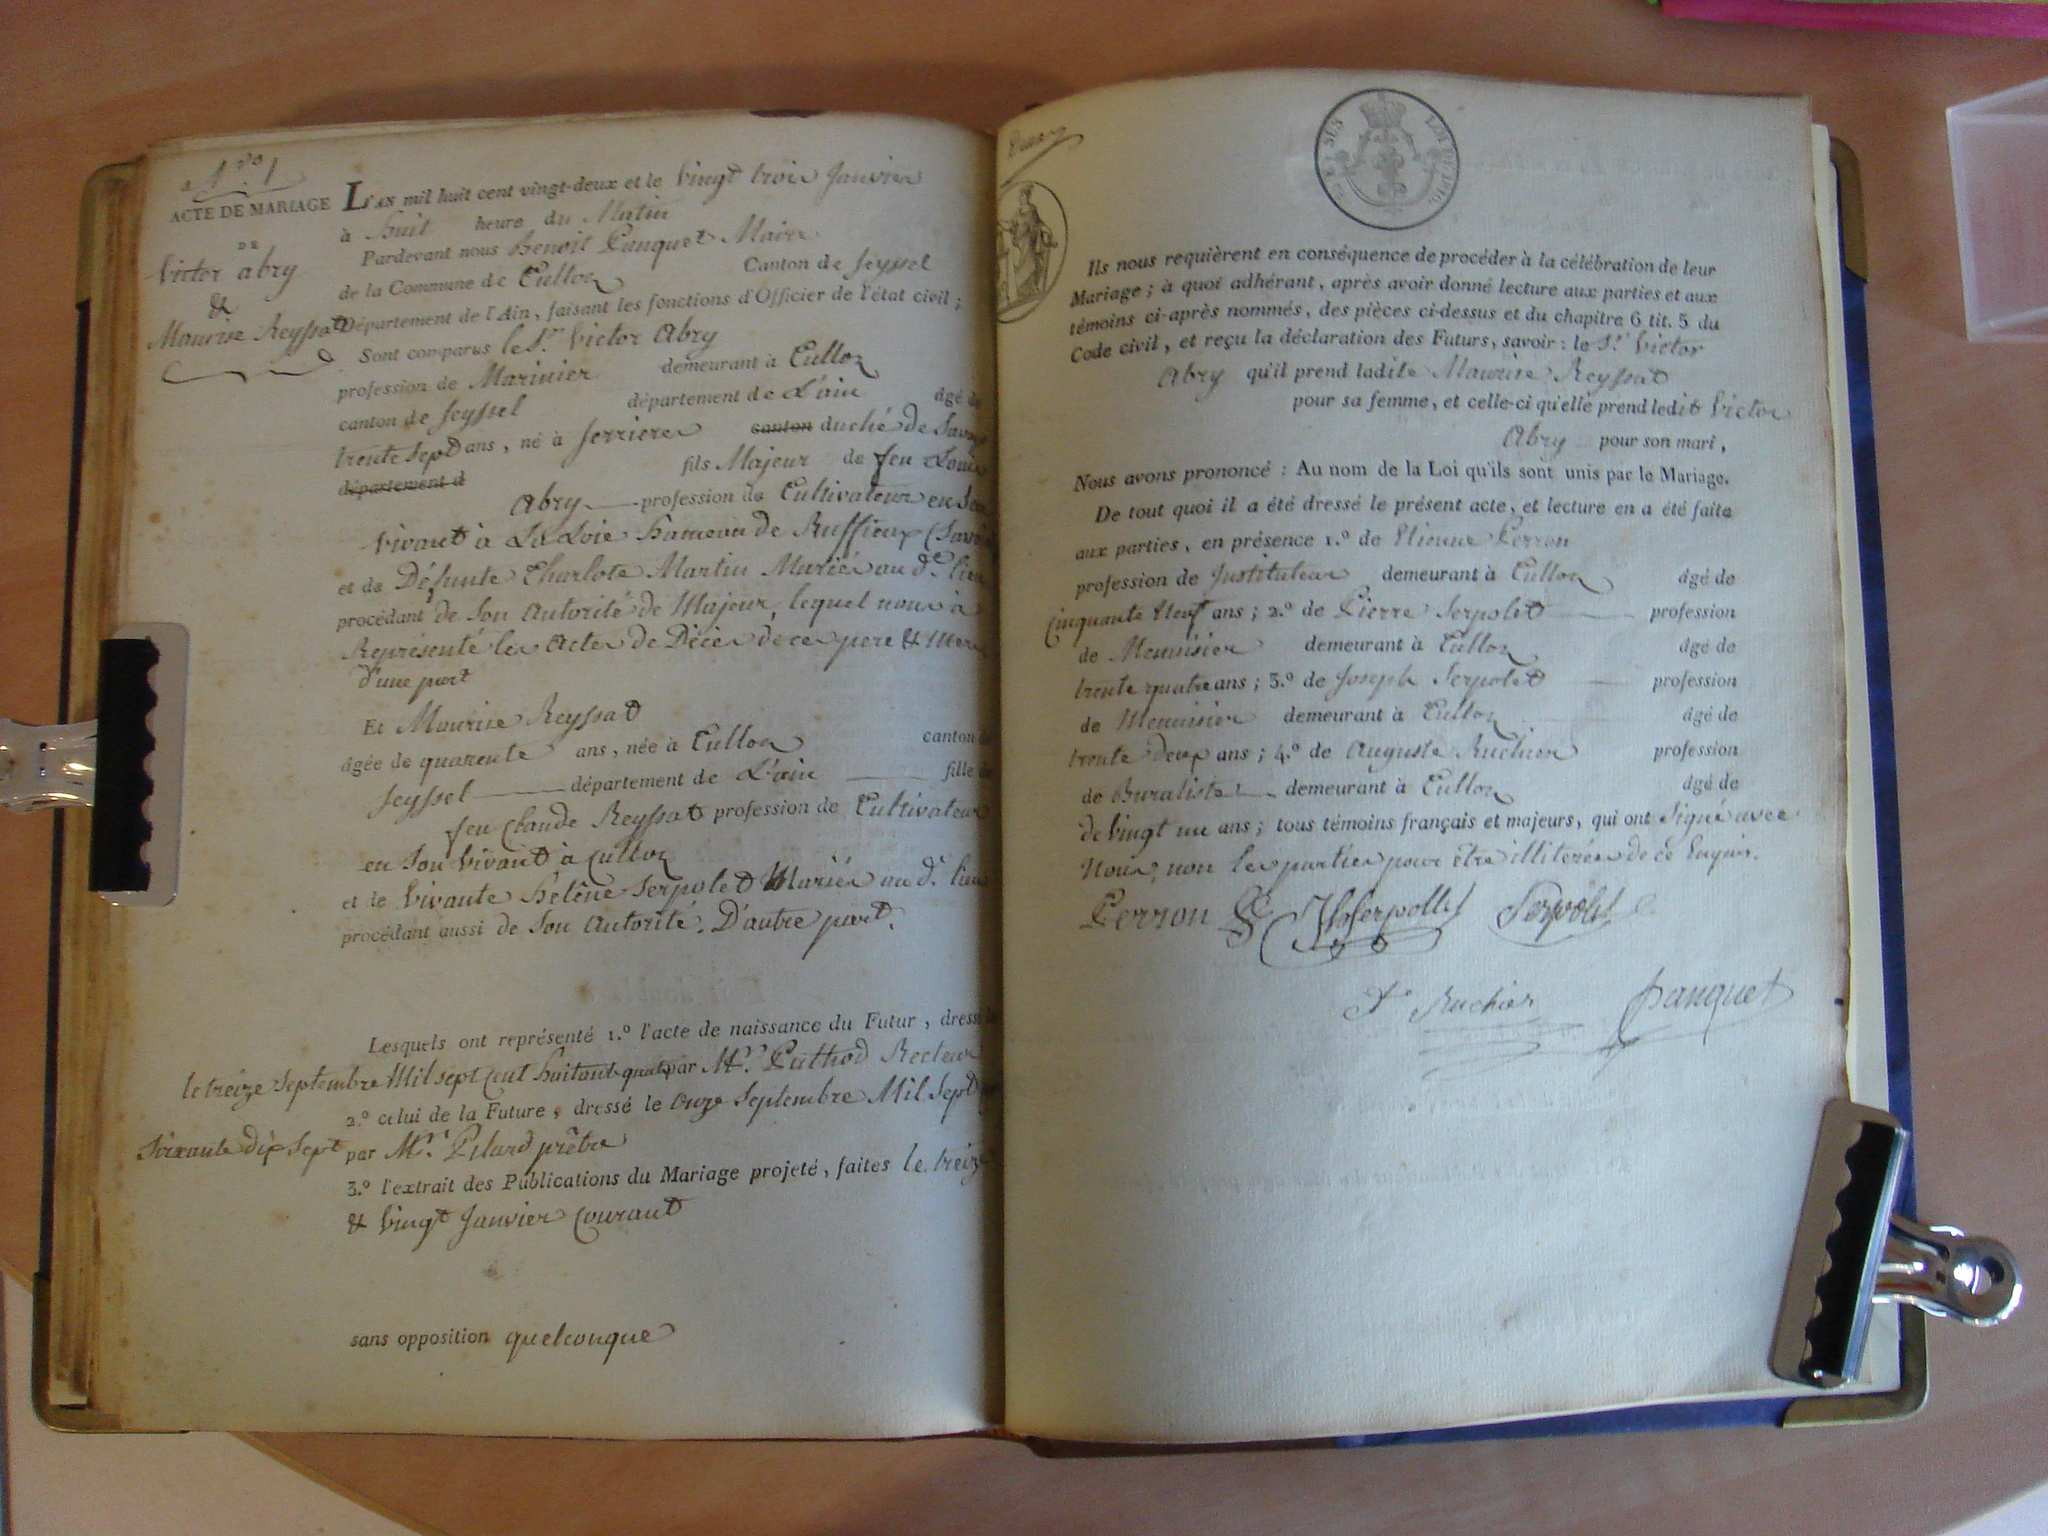 N.ro 1
ACTE DE MARIAGE
DE
Victor abry
&
Maurise Reyssat
L'AN mil huit cent vingt-deux et le Vingt trois Janvier
à huit heure du Matin
Pardevant nous Benoit Panquet Maire
de la Commune de Culloz Canton de Seyssel
Département de l'Ain, faisant les fonctions d'Officier de l'état civil ;
Sont comparus le S.r Victor Abry
profession de Marinier demeurant à Culloz
canton de Seyssel département de L'ain âgé de
trente sept ans, né à Serrieres canton duché de Savoye
département d fils Majeur de feu Louis
Abry profession de Cultivateur en Son
vivant à La Loie hameau de Ruffieux (Savoie
et de Défunte Charlote Martin Mariés au d.t lieu
procédant de Son Autorité de Majeur, lequel nous à
Représenté les Actes de Décès de ces pere & mere
d'une part
Et Maurise Reyssat
âgée de quarente ans, née à Culloz canton de
Seyssel département de L'ain fille de
feu Claude Reyssat profession de Cultivateur
en Son Vivant à Culloz
et de Vivante Helêne Serpolet Mariés au d.t lieu
procédant aussi de Son Autorité. D'autre part.
Lesquels ont représenté 1.º l'acte de naissance du Futur, dressé
le treize Septembre Mil sept Cent huitant quat par M.r Puthod Recteur
2.º celui de la Future, dressé le Onze Septembre Mil Sept
Soixante dix Sept par M.r Pilard prêtre
3.º l'extrait des Publications du Mariage projeté, faites le treize
& Vingt Janvier Courant
sans opposition quelconque
Ils nous requièrent en conséquence de procéder à la célébration de leur
Mariage ; à quoi adhérant, après avoir donné lecture aux parties et aux
témoins ci-après nommés, des pièces ci-dessus et du chapitre 6 tit. 5 du
Code civil, et reçu la déclaration des Futurs, savoir : le S.r Victor
Abry qu'il prend ladite Maurise Reyssat
pour sa femme, et celle-ci qu'elle prend ledit Victor
Abry pour son mari,
Nous avons prononcé : Au nom de la Loi qu'ils sont unis par le Mariage.
De tout quoi il a été dressé le présent acte, et lecture en a été faite
aux parties, en présence 1.º de Etienne Perron
profession de Instituteur demeurant à Culloz âgé de
Cinquante Neuf ans ; 2.º de Pierre Serpolet profession
de Menuisier demeurant à Culloz âgé de
trente quatre ans ; 3.º de Joseph Serpolet profession
de Menuisier demeurant à Culloz âgé de
trente deux ans ; 4.º de Auguste Ruchier profession
de Buraliste demeurant à Culloz âgé de
de Vingt un ans ; tous témoins français et majeurs, qui ont Signé avec
Nous, non les parties pour être illiterées de ce Enquis.
Perron Serpollet Serpolet
Ruchier Panquet